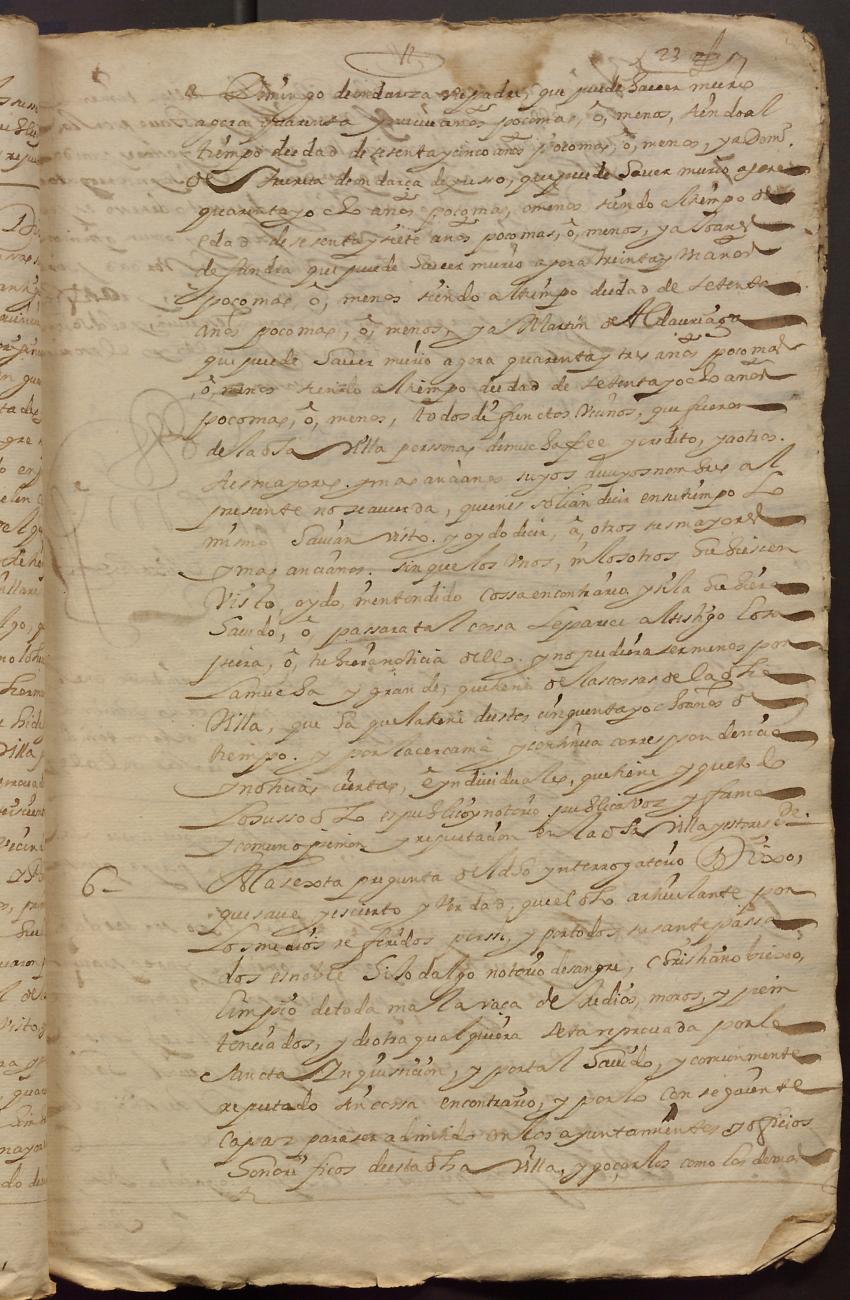 23
a Domingo de ondarza su padre, que puede haver murio
agora quarenta y nueve años pocomas, ô, menos, siendo al
tiempo de edad de sesenta y cinco años pocomas, ô, menos, y a Dom.
de Yturrita de ondarça de yusso, que puede haver murio agora
quarenta y ocho años pocomas, ô menos siendo al tiempo de
edad de sesenta y siete años pocomas, ô, menos, y a Joan
de que puede haver murio agora treinta y años
pocomas, ô, menos siendo al tiempo de edad de setenta
años pocomas, ô, menos, y a Martin de Aldauriaga
que puede haver murio agora quarenta y tres años pocomas
ô, menos siendo al tiempo de edad de setenta y ocho años
pocomas, ô, menos, todos defunctos vecinos, que fueron
de la dha Villa personas de mucha fee y credito, y a otros
sus mayores. y mas ançianos suyos de cuyos nombres al
presente no se acuerda, quienes solian decir en su tiempo lo
mismo havian visto. y oydo decir, â, otros sus mayores
y mas ancianos. sin que los vnos, ni los otros hubiesen
visto, oydo, ni entendido cossa en contrario, y si la hubiera
havido, ô, passara tal cossa le pareçe al testigo lo
ô, tubiera noticia de ello. y no pudiera ser menos por
la mucha y grande, que tiene de las cossas de la dha
Villa, que ha que la tiene de estos cinquenta y ocho años de
tiempo. y por la cercania y continua correspondencia
y noticias ciertas, ê yndividuales, que tiene y que todo
lo susso dho es publico y notorio publica voz y fama
y comun opinion y reputacion en la dha Villa y
6 A la sexta pregunta del dho ynterrogatorio Dixo,
que save, y es cierto y verdad, que el dho articulante por
los medios referidos persi, y por todos sus antepassa
dos es noble hijo dalgo notorio de sangre, christiano biexo,
limpio de toda mala raça de Judios, moros, y peni
tenciados, y de otra qualquiera seta reprovada por la
sancta Inquisicion, y por tal havido, y comunmente
reputado sin cossa en contrario, y por lo consiguiente
capaz para ser admitido en los ayuntamientos y oficios
honorificos de esta dha Villa, y goçarlos como los demas